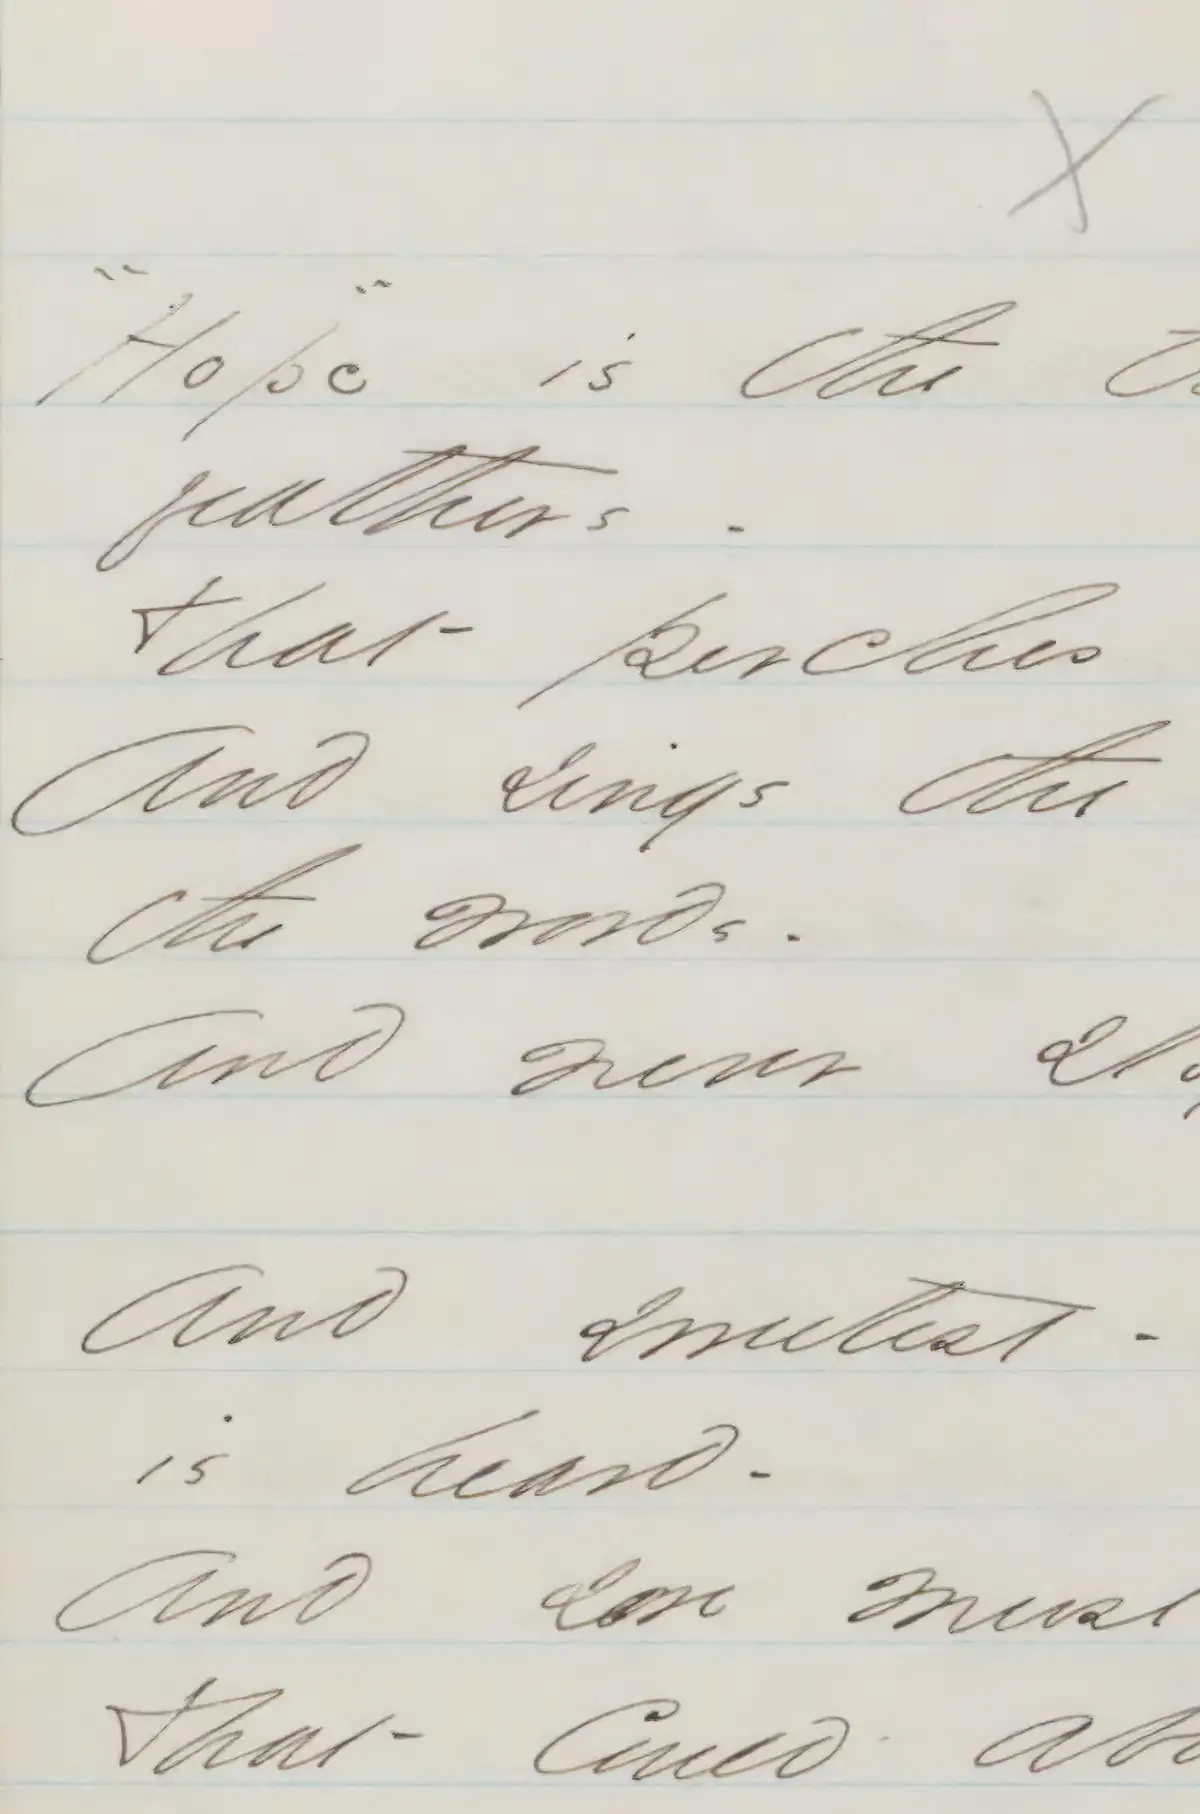 X
"Hope" is the
feathers -
that perches
And sings the
the words -
And never
And sweetest -
is heard -
And sore must
that could